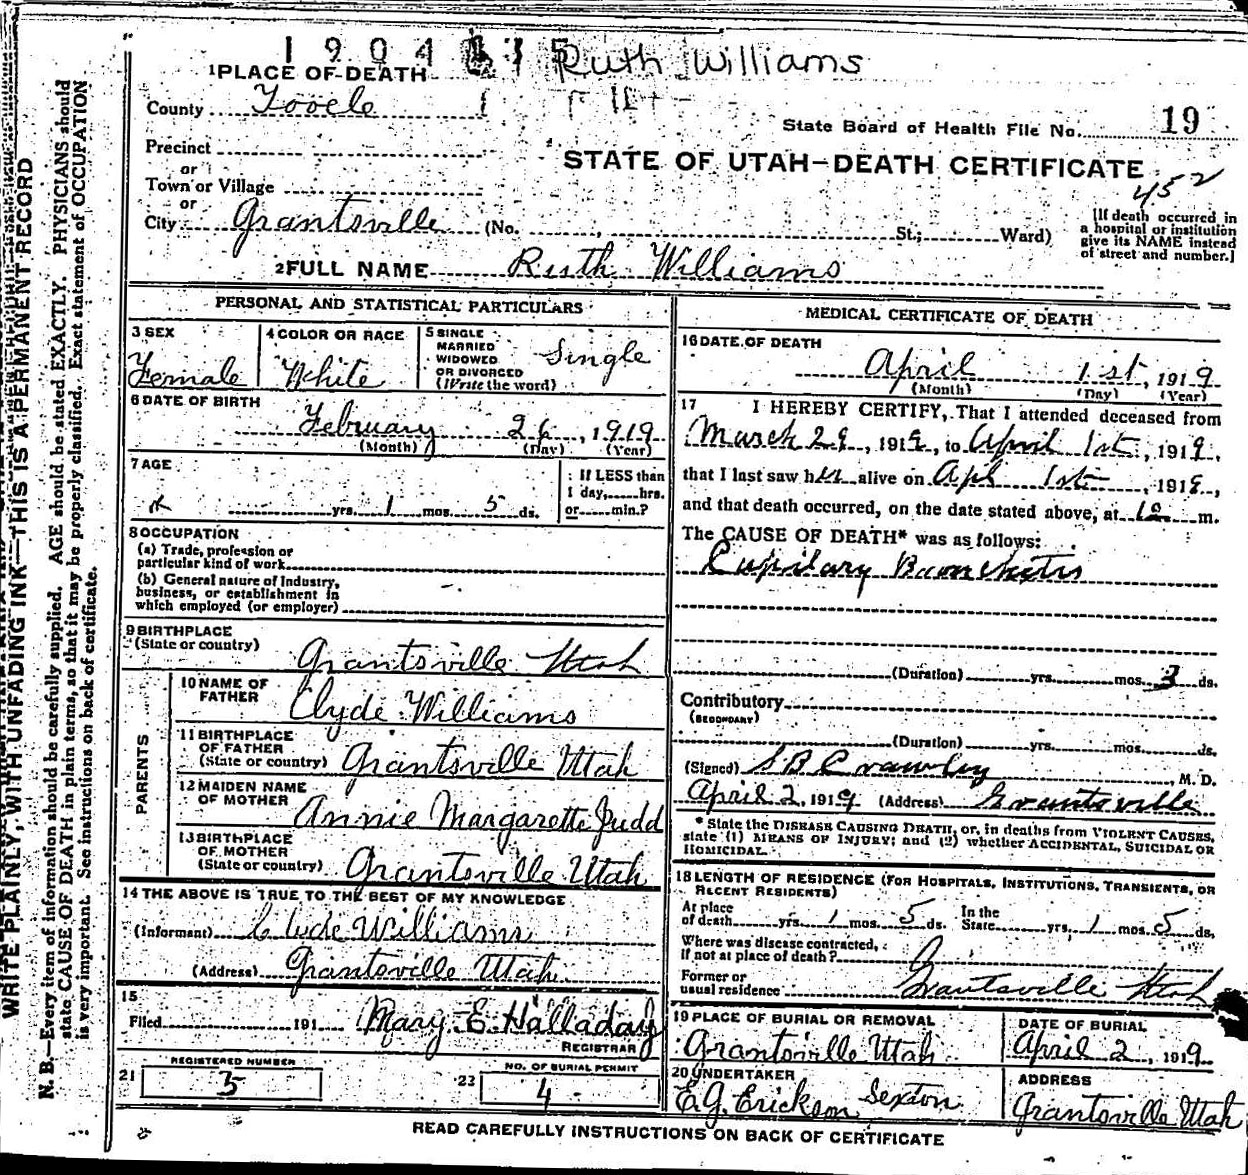 1904
Ruth Williams
1 PLACE OF DEATH
County Tooele
State Board of Health File No. 19
Precinct
or
Town or Village
or
City Grantsville (No. , St.; Ward)
STATE OF UTAH—DEATH CERTIFICATE
452
[If death occurred in
a hospital or institution
give its NAME instead
of street and number.]
2 FULL NAME Ruth Williams
PERSONAL AND STATISTICAL PARTICULARS
3 SEX
Female
4 COLOR OR RACE
White
5 SINGLE
MARRIED
WIDOWED
OR DIVORCED
(Write the word)
Single
6 DATE OF BIRTH
February 26, 1919
(Month) (Day) (Year)
7 AGE
yrs. 1 mos. 5 ds.
If LESS than
1 day, hrs.
or min.?
8 OCCUPATION
(a) Trade, profession or
particular kind of work
(b) General nature of Industry,
business, or establishment in
which employed (or employer)
9 BIRTHPLACE
(State or country)
Grantsville Utah
PARENTS
10 NAME OF
FATHER
Clyde Williams
11 BIRTHPLACE
OF FATHER
(State or country) Grantsville Utah
12 MAIDEN NAME
OF MOTHER
Annie Margarette Judd
13 BIRTHPLACE
OF MOTHER
(State or country) Grantsville Utah
14 THE ABOVE IS TRUE TO THE BEST OF MY KNOWLEDGE
(Informant) Clyde Williams
(Address) Grantsville Utah
15
Filed 191 Mary E. Halladay
REGISTRAR
REGISTERED NUMBER
21 5
NO. OF BURIAL PERMIT
22 4
MEDICAL CERTIFICATE OF DEATH
16 DATE OF DEATH
April 1st, 1919
(Month) (Day) (Year)
17 I HEREBY CERTIFY, That I attended deceased from
March 29, 1919, to April 1st, 1919,
that I last saw her alive on Apl 1st, 1919,
and that death occurred, on the date stated above, at 12 m.
The CAUSE OF DEATH* was as follows:
Cupilary Bronchitis
(Duration) yrs. mos. 3 ds.
Contributory
(SECONDARY)
(Duration) yrs. mos. ds.
(Signed) S B Crawley, M. D.
April 2, 1919 (Address) Grantsville
* State the DISEASE CAUSING DEATH, or, in deaths from VIOLENT CAUSES,
state (1) MEANS OF INJURY; and (2) whether ACCIDENTAL, SUICIDAL OR
HOMICIDAL.
18 LENGTH OF RESIDENCE (FOR HOSPITALS, INSTITUTIONS, TRANSIENTS, OR
RECENT RESIDENTS)
At place
of death yrs. 1 mos. 5 ds. In the
State yrs. 1 mos. 5 ds.
Where was disease contracted,
if not at place of death?
Former or
usual residence Grantsville Utah
19 PLACE OF BURIAL OR REMOVAL
Grantsville Utah
DATE OF BURIAL
April 2, 1919
20 UNDERTAKER
E.G. Erickson Sexton
ADDRESS
Grantsville Utah
READ CAREFULLY INSTRUCTIONS ON BACK OF CERTIFICATE
WRITE PLAINLY, WITH UNFADING INK—THIS IS A PERMANENT RECORD
N. B.—Every item of information should be carefully supplied. AGE should be stated EXACTLY. PHYSICIANS should
state CAUSE OF DEATH in plain terms, so that it may be properly classified. Exact statement of OCCUPATION
is very important. See instructions on back of certificate.